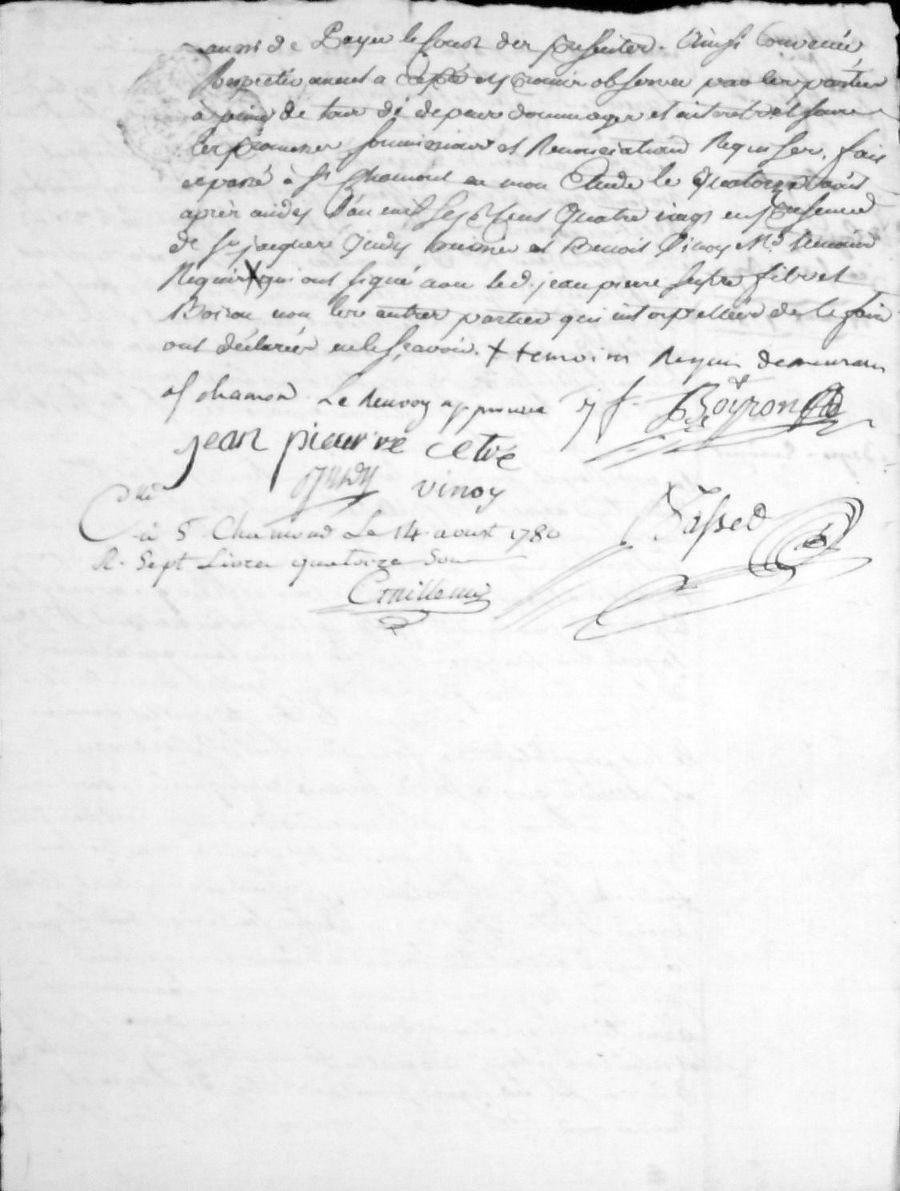 de Payer le sout des presentes. Ainsi Convenu
Respectivement accepté et promis observer par les parties
a peine de tous depens dommages et interets sous
les promesses soumissions et Renonciations Requises. fait
et passé à St Chamond en mon Etude le Quatorze aoust
après midy L'an mil sept Cent Quatre vingt en presence
de Sr jacques Judy et Benoit Vinoy Md temoins
Requis X qui ont signé avec led. jean pierre filset
Boiron non les autres parties qui interpellées de le faire
ont déclarées ne le sçavoir. X temoins Requis demeurant
St chamond. Le Renvoy approuvé J f. Boiron
jean pieurre cetre
Judy vinoy
C.lé à S. Chamond Le 14 aoust 1780
R. Sept Livres quatorze Sous